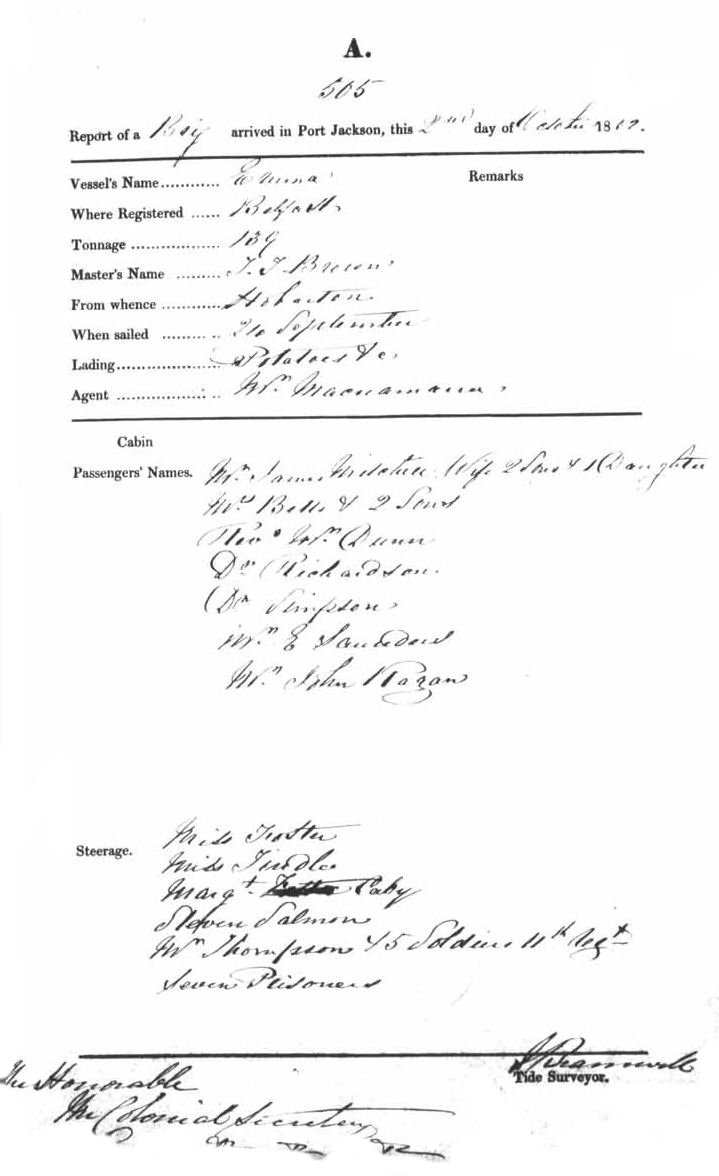 A.
505
Report of a Brig arrived in Port Jackson, this 2nd day of October 18
Vessel's Name............ Emma Remarks
Where Registered ...... Belfast
Tonnage ................ 139
Master's Name ......... Brown
From whence ............ Hobarton
When sailed ......... .. September
Lading.................... Potatoes &c
Agent .................... Macnamara
Cabin
Passengers' Names. Mr. James Mitchell Wife 2 Sons & 1 Daughter
Mrs Betts & 2 Sons
Revd Wm Dunn
Dr Richardson
Dr Simpson
Mr E Saunders
Mr John
Steerage. Miss Foster
Miss Tindle
Margt Caby
Steven Salmon
Thompson & 5 Soldiers 11th Regt
Seven Prisoners
Tide Surveyor.
The Honorable
The Colonial Secretary